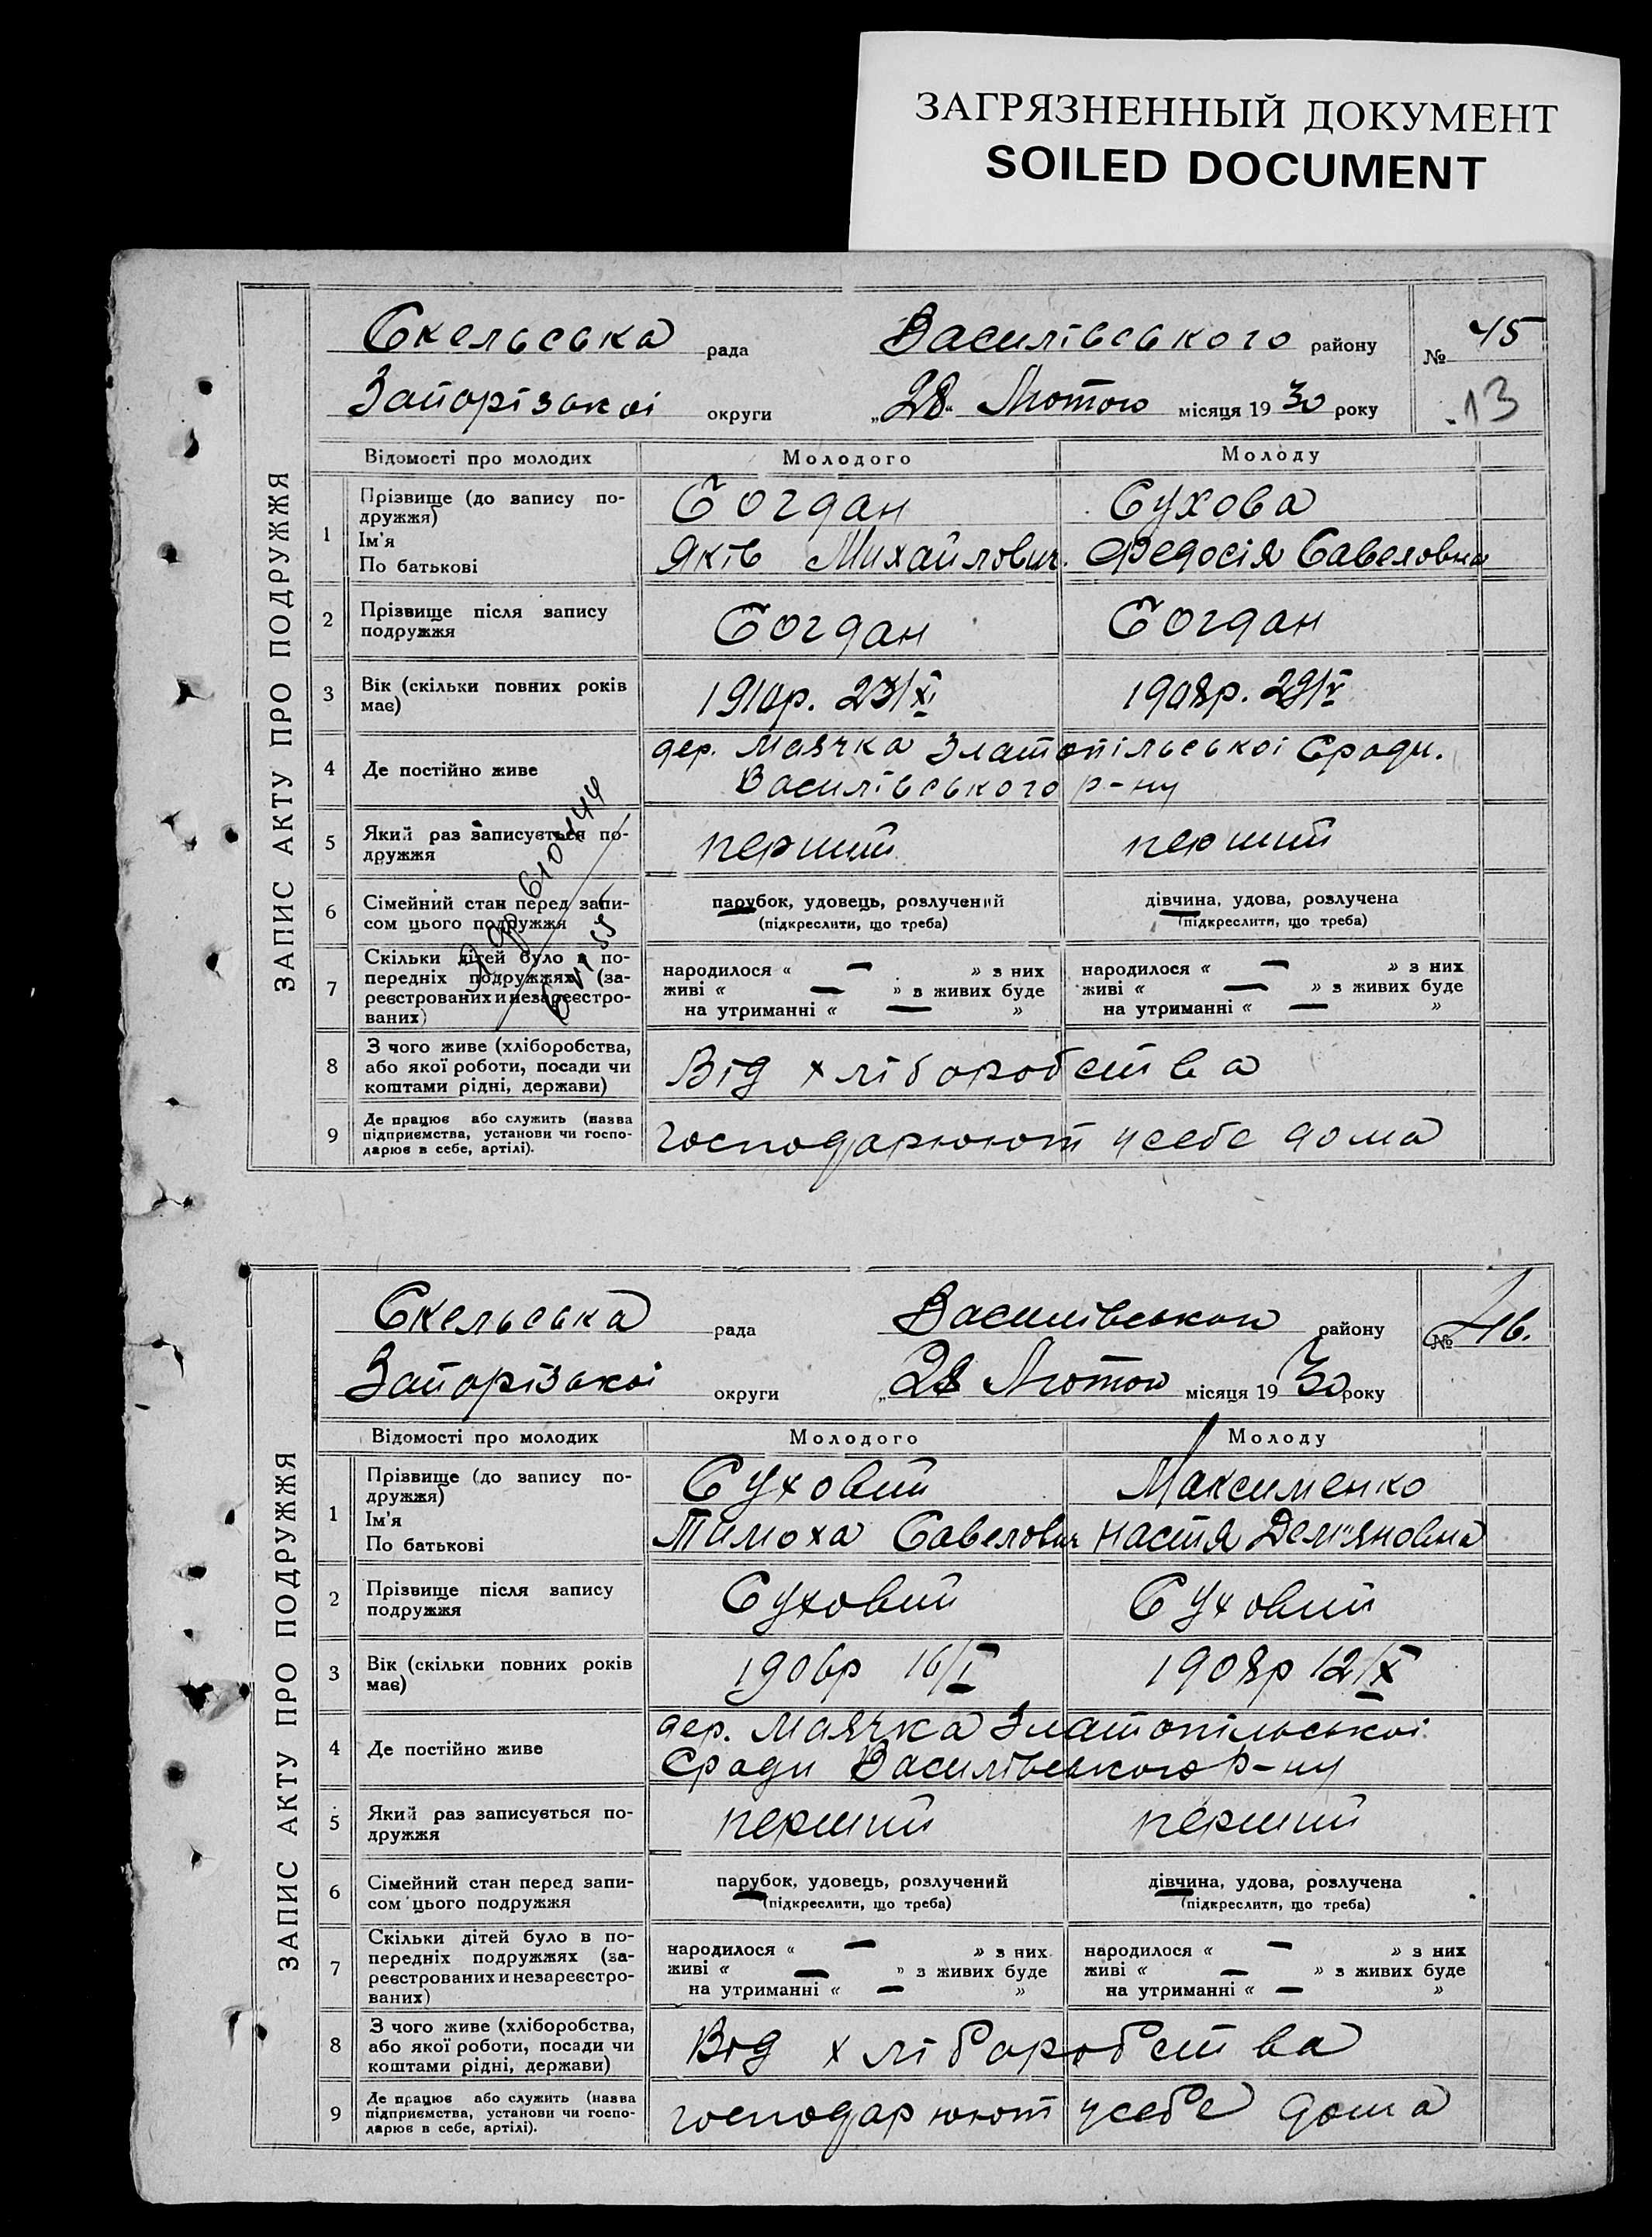 ЗАГРЯЗНЕННЫЙ ДОКУМЕНТ
SOILED DOCUMENT
ЗАПИС АКТУ ПРО ПОДРУЖЖЯ
Скельська рада Василівського району № 45
Запорізької округи „28“ Лютого місяця 1930 року 13
Відомості про молодих Молодого Молоду
1 Прізвище (до запису по-
дружжя) Богдан Сухова
Ім'я
По батькові Яків Михайлович Федосія Савеловна
2 Прізвище після запису
подружжя Богдан Богдан
3 Вік (скільки повних років
має) 1910р. 23/XI 1908р. 29/V
4 Де постійно живе дер. Маячка Златопільської Сради.
Василівського р-ну
5 Який раз записується по-
дружжя перший перший
6 Сімейний стан перед запи-
сом цього подружжя
парубок, удовець, розлучений
(підкреслити, що треба)
дівчина, удова, розлучена
(підкреслити, що треба)
7 Скільки дітей було в по-
передніх подружжях (за-
реєстрованих и незареєстро-
ваних)
народилося « — » з них
живі « — » з живих буде
на утриманні « — »
народилося « — » з них
живі « — » з живих буде
на утриманні « — »
8 З чого живе (хліборобства,
або якої роботи, посади чи
коштами рідні, держави) Від хліборобства
9 Де працює або служить (назва
підприємства, установи чи госпо-
дарює в себе, артілі). господарюют усебе дома
ЗАПИС АКТУ ПРО ПОДРУЖЖЯ
Скельська рада Василівського району № 46.
Запорізької округи „28 Лютого місяця 1930 року
Відомості про молодих Молодого Молоду
1 Прізвище (до запису по-
дружжя) Суховий Максименко
Ім'я
По батькові Тимоха Савелович Настя Дем'яновна
2 Прізвище після запису
подружжя Суховий Суховий
3 Вік (скільки повних років
має) 1906р 16/I 1908р 12/IX
4 Де постійно живе дер. Маячка Златопільської
Сради Василівського р-ну
5 Який раз записується по-
дружжя перший перший
6 Сімейний стан перед запи-
сом цього подружжя
парубок, удовець, розлучений
(підкреслити, що треба)
дівчина, удова, розлучена
(підкреслити, що треба)
7 Скільки дітей було в по-
передніх подружжях (за-
реєстрованих и незареєстро-
ваних)
народилося « — » з них
живі « — » з живих буде
на утриманні « — »
народилося « — » з них
живі « — » з живих буде
на утриманні « — »
8 З чого живе (хліборобства,
або якої роботи, посади чи
коштами рідні, держави) Від хліборобства
9 Де працює або служить (назва
підприємства, установи чи госпо-
дарює в себе, артілі). господарюют усебе дома